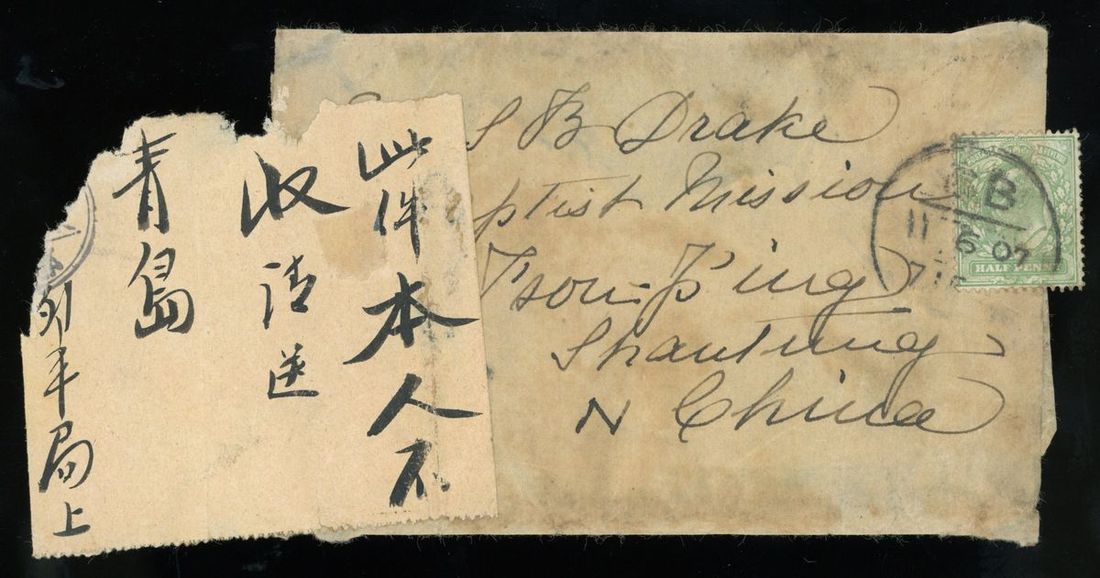 此件本人不
收请送
青島
平局上
S B Drake
ptist Mission
Tsou-P'ing
Shantung
N China
B
11 6 07
HALF PENNY